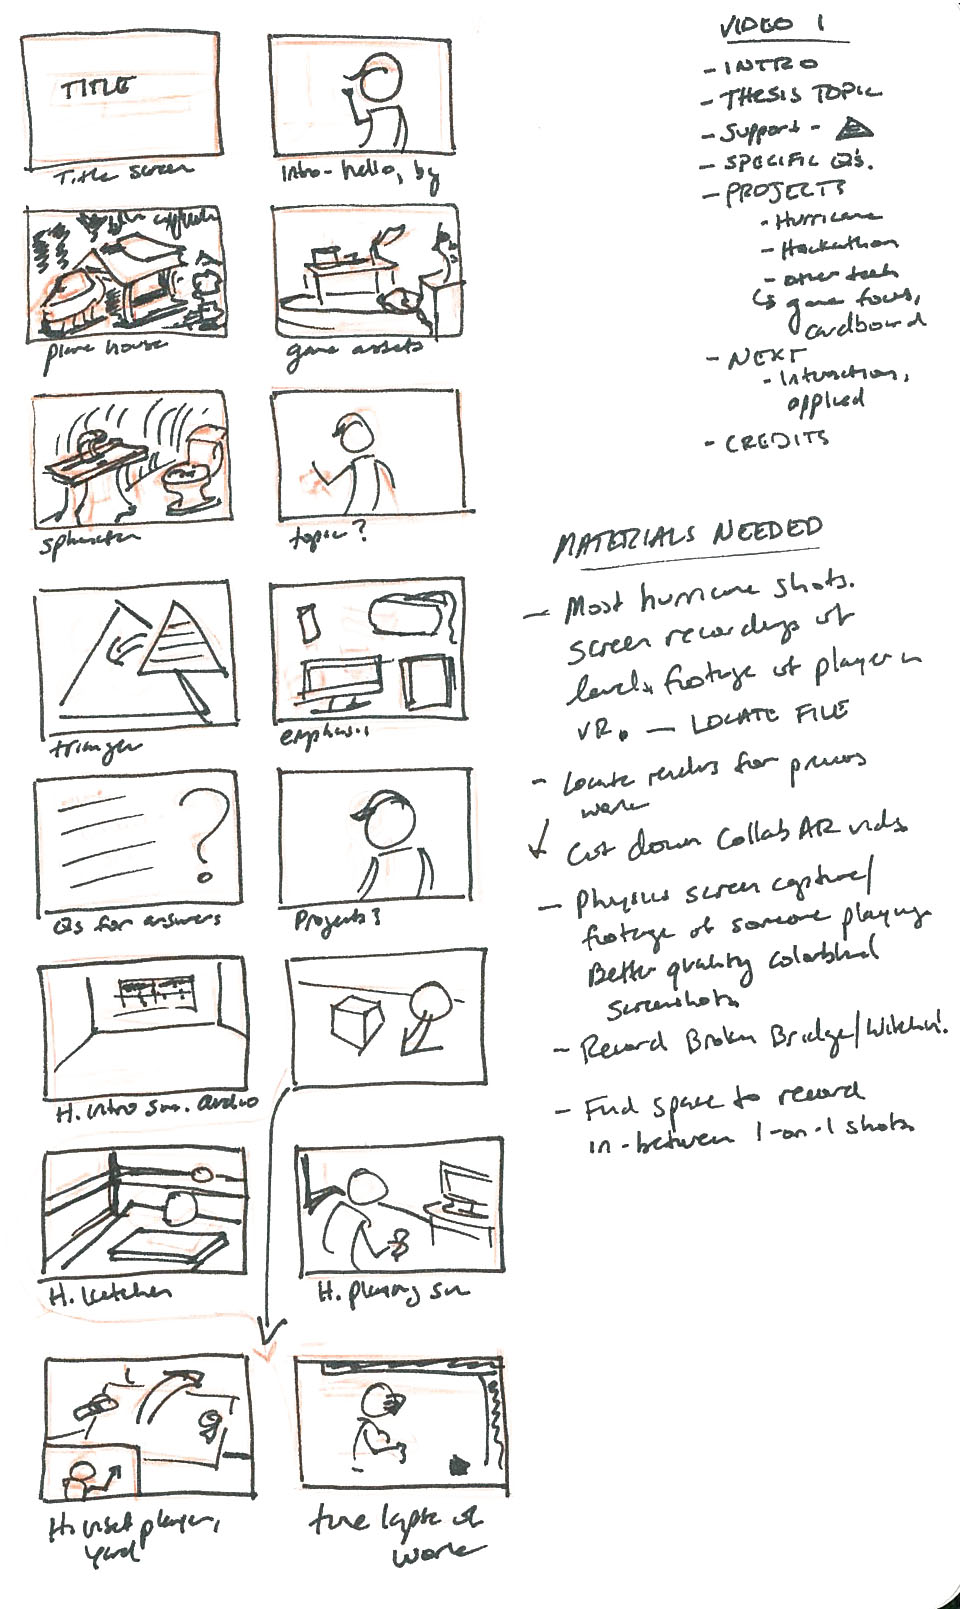 TITLE
Title screen
Intro - hello, by
plane house
game assets
topic?
triangle
Qs for answers
Projects?
H. intro scn. audio
H. kitchen
H. playing scn
H. inset player,
yard
time lapse of
work
VIDEO 1
- INTRO
- THESIS TOPIC
- Support -
- SPECIFIC Q's.
- PROJECTS
- Hurricane
- Hackathon
- other tech
↳ game focus,
cardboard
- NEXT
- Interaction,
applied
- CREDITS
MATERIALS NEEDED
- Most hurricane shots.
screen recordings of
levels, footage of player in
VR. — LOCATE FILE
- Locate renders for previous
work
↓ Cut down Collab AR vids.
- Physics screen capture/
footage of someone playing
Better quality colorblind
screenshots
- Record Broken Bridge/
- Find space to record
in-between 1-on-1 shots